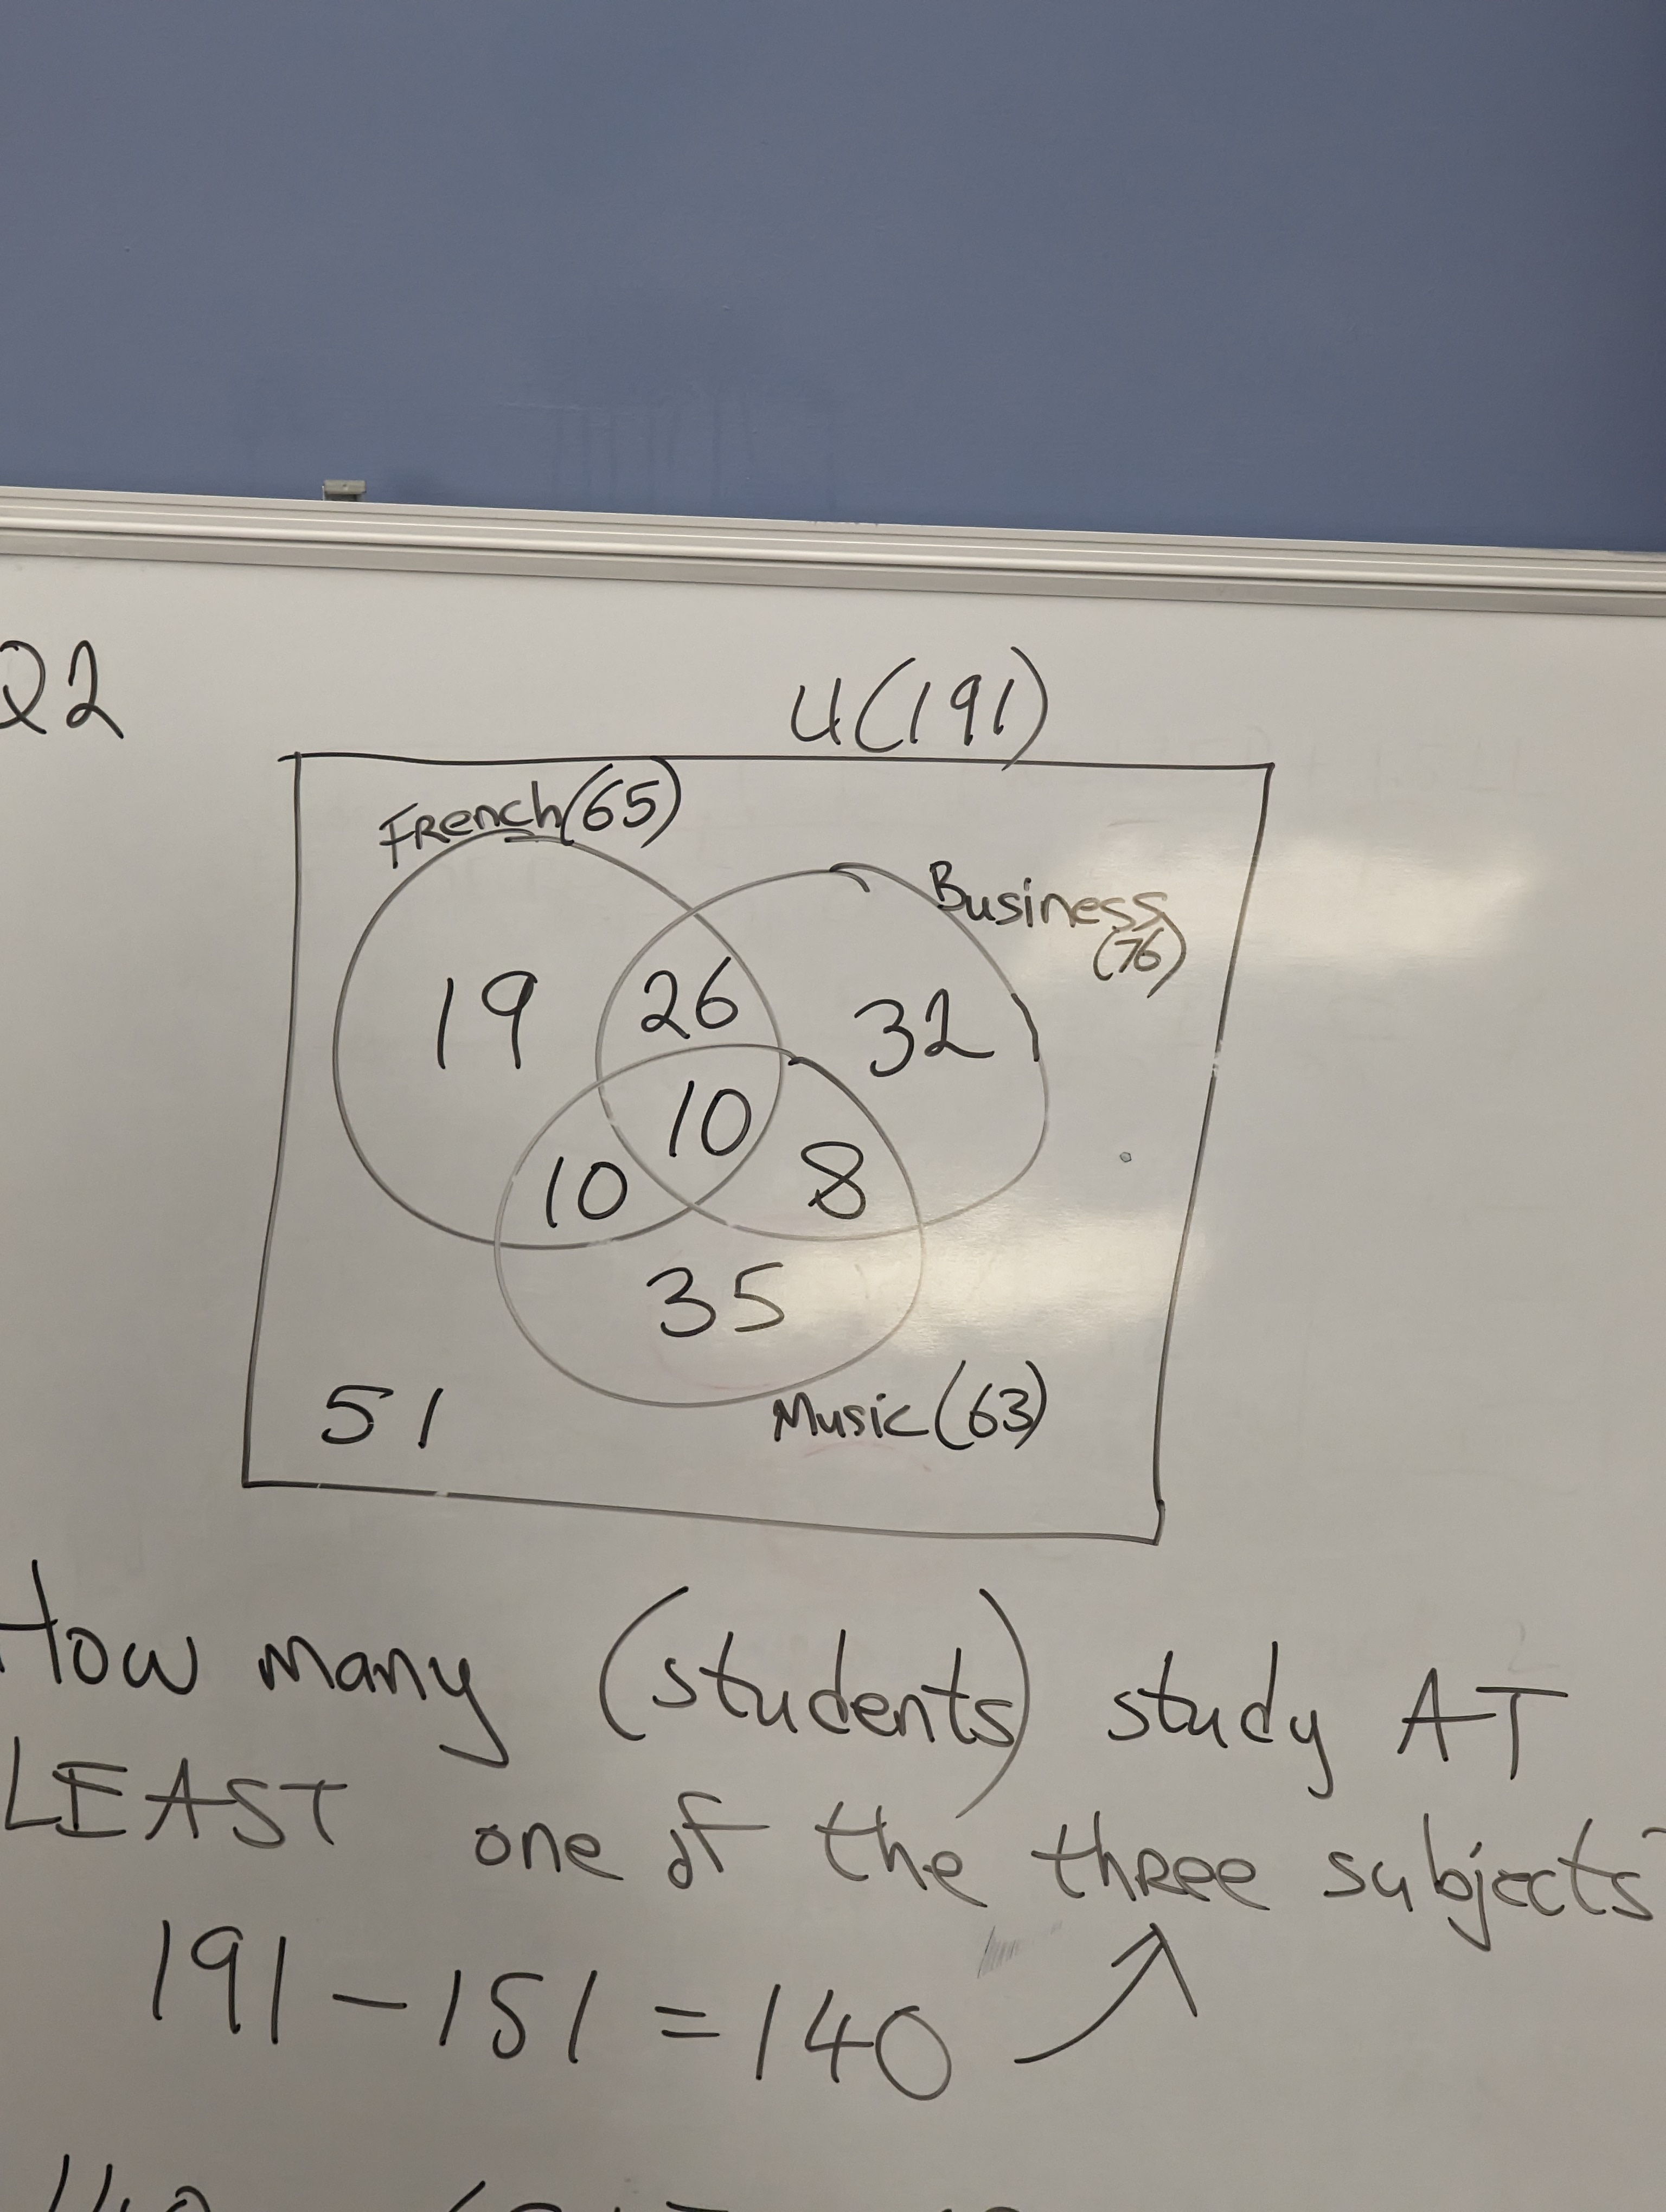 Q2
U(191)
French(65)
Business
(76)
19
26
32
10
10
8
35
51
Music(63)
How many (students) study AT
LEAST one of the three subjects?
191-151=140